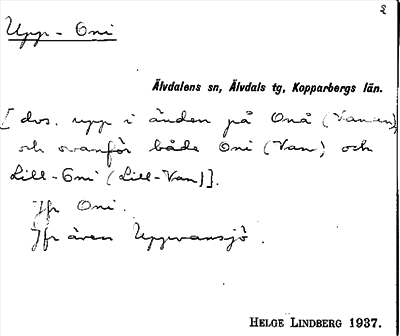 2
Upp-Oni
Älvdalens sn, Älvdals tg, Kopparbergs län.
[dvs. upp i änden på Onå (Vanan)
och ovanför både Oni (Van) och
Lill-Oni (Lill-Van)].
Jfr Oni.
Jfr även Uppvansjö.
HELGE LINDBERG 1937.